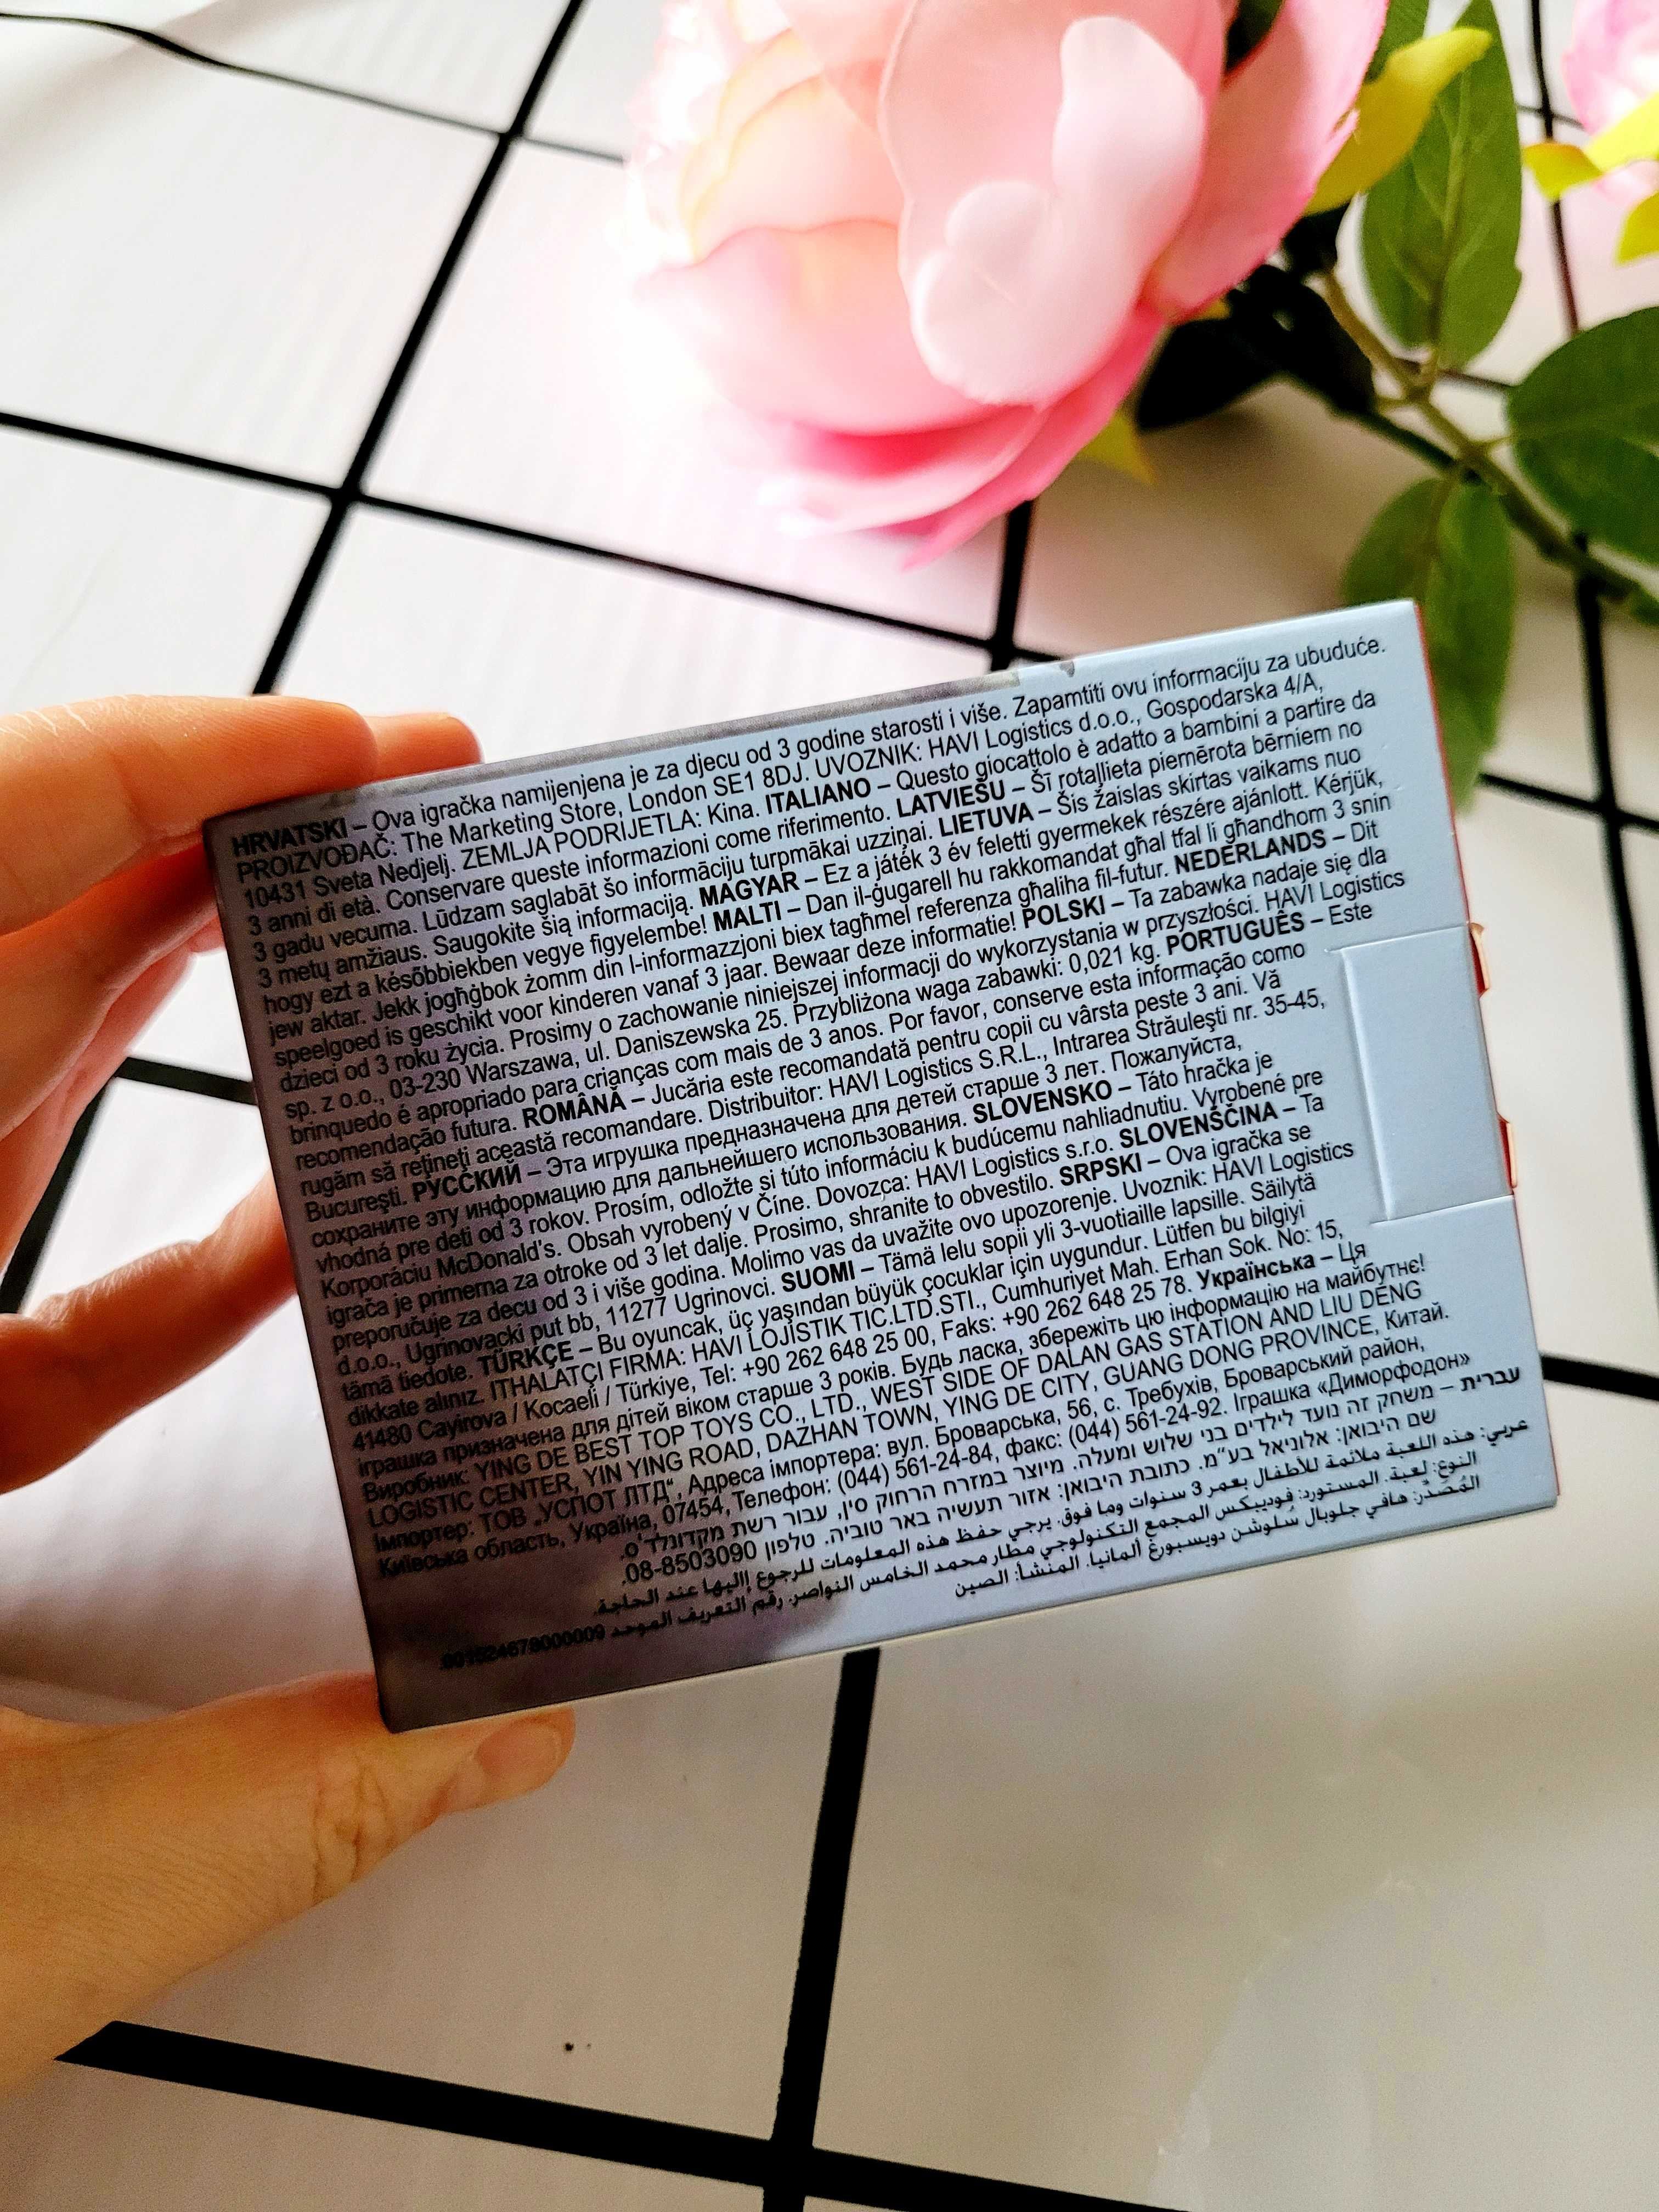 HRVATSKI – Ova igračka namijenjena je za djecu od 3 godine starosti i više. Zapamtiti ovu informaciju za ubuduće.
PROIZVOĐAČ: The Marketing Store, London SE1 8DJ. UVOZNIK: HAVI Logistics d.o.o., Gospodarska 4/A,
10431 Sveta Nedjelj. ZEMLJA PODRIJETLA: Kina. ITALIANO – Questo giocattolo è adatto a bambini a partire da
3 anni di età. Conservare queste informazioni come riferimento. LATVIEŠU – Šī rotaļlieta piemērota bērniem no
3 gadu vecuma. Lūdzam saglabāt šo informāciju turpmākai uzziņai. LIETUVA – Šis žaislas skirtas vaikams nuo
3 metų amžiaus. Saugokite šią informaciją. MAGYAR – Ez a játék 3 év feletti gyermekek részére ajánlott. Kérjük,
hogy ezt a későbbiekben vegye figyelembe! MALTI – Dan il-ġugarell hu rakkomandat għal tfal li għandhom 3 snin
jew aktar. Jekk jogħġbok żomm din l-informazzjoni biex tagħmel referenza għaliha fil-futur. NEDERLANDS – Dit
speelgoed is geschikt voor kinderen vanaf 3 jaar. Bewaar deze informatie! POLSKI – Ta zabawka nadaje się dla
dzieci od 3 roku życia. Prosimy o zachowanie niniejszej informacji do wykorzystania w przyszłości. HAVI Logistics
sp. z o.o., 03-230 Warszawa, ul. Daniszewska 25. Przybliżona waga zabawki: 0,021 kg. PORTUGUÊS – Este
brinquedo é apropriado para crianças com mais de 3 anos. Por favor, conserve esta informação como
recomendação futura. ROMÂNĂ – Jucăria este recomandată pentru copii cu vârsta peste 3 ani. Vă
rugăm să reţineţi această recomandare. Distribuitor: HAVI Logistics S.R.L., Intrarea Străuleşti nr. 35-45,
Bucureşti. РУССКИЙ – Эта игрушка предназначена для детей старше 3 лет. Пожалуйста,
сохраните эту информацию для дальнейшего использования. SLOVENSKO – Táto hračka je
vhodná pre deti od 3 rokov. Prosím, odložte si túto informáciu k budúcemu nahliadnutiu. Vyrobené pre
Korporáciu McDonald's. Obsah vyrobený v Číne. Dovozca: HAVI Logistics s.r.o. SLOVENŠČINA – Ta
igrača je primerna za otroke od 3 let dalje. Prosimo, shranite to obvestilo. SRPSKI – Ova igračka se
preporučuje za decu od 3 i više godina. Molimo vas da uvažite ovo upozorenje. Uvoznik: HAVI Logistics
d.o.o., Ugrinovački put bb, 11277 Ugrinovci. SUOMI – Tämä lelu sopii yli 3-vuotiaille lapsille. Säilytä
tämä tiedote. TÜRKÇE – Bu oyuncak, üç yaşından büyük çocuklar için uygundur. Lütfen bu bilgiyi
dikkate alınız. ITHALATÇI FIRMA: HAVI LOJİSTIK TIC.LTD.STI., Cumhuriyet Mah. Erhan Sok. No: 15,
41480 Cayirova / Kocaeli / Türkiye, Tel: +90 262 648 25 00, Faks: +90 262 648 25 78. Українська – Ця
іграшка призначена для дітей віком старше 3 років. Будь ласка, збережіть цю інформацію на майбутнє!
Виробник: YING DE BEST TOP TOYS CO., LTD., WEST SIDE OF DALAN GAS STATION AND LIU DENG
LOGISTIC CENTER, YIN YING ROAD, DAZHAN TOWN, YING DE CITY, GUANG DONG PROVINCE, Китай.
Імпортер: ТОВ „УСПОТ ЛТД“, Адреса імпортера: вул. Броварська, 56, с. Требухів, Броварський район,
Київська область, Україна, 07454, Телефон: (044) 561-24-84, факс: (044) 561-24-92. Іграшка «Диморфодон»
עברית – משחק זה נועד לילדים בני שלוש ומעלה. מיוצר במזרח הרחוק סין, עבור רשת מקדונלד'ס.
שם היבואן: אלוניאל בע״מ. כתובת היבואן: אזור תעשיה באר טוביה. טלפון 08-8503090.
عربي: هذه اللعبة ملائمة للأطفال بعمر 3 سنوات وما فوق. يرجي حفظ هذه المعلومات للرجوع إليها عند الحاجة.
النوع: لعبة. المستورد: فوديبكس المجمع التكنولوجي مطار محمد الخامس النواصر. رقم التعريف الموحد
المُصَدِّر: هافي جلوبال سُلوشن دويسبورغ ألمانيا. المنشأ: الصين